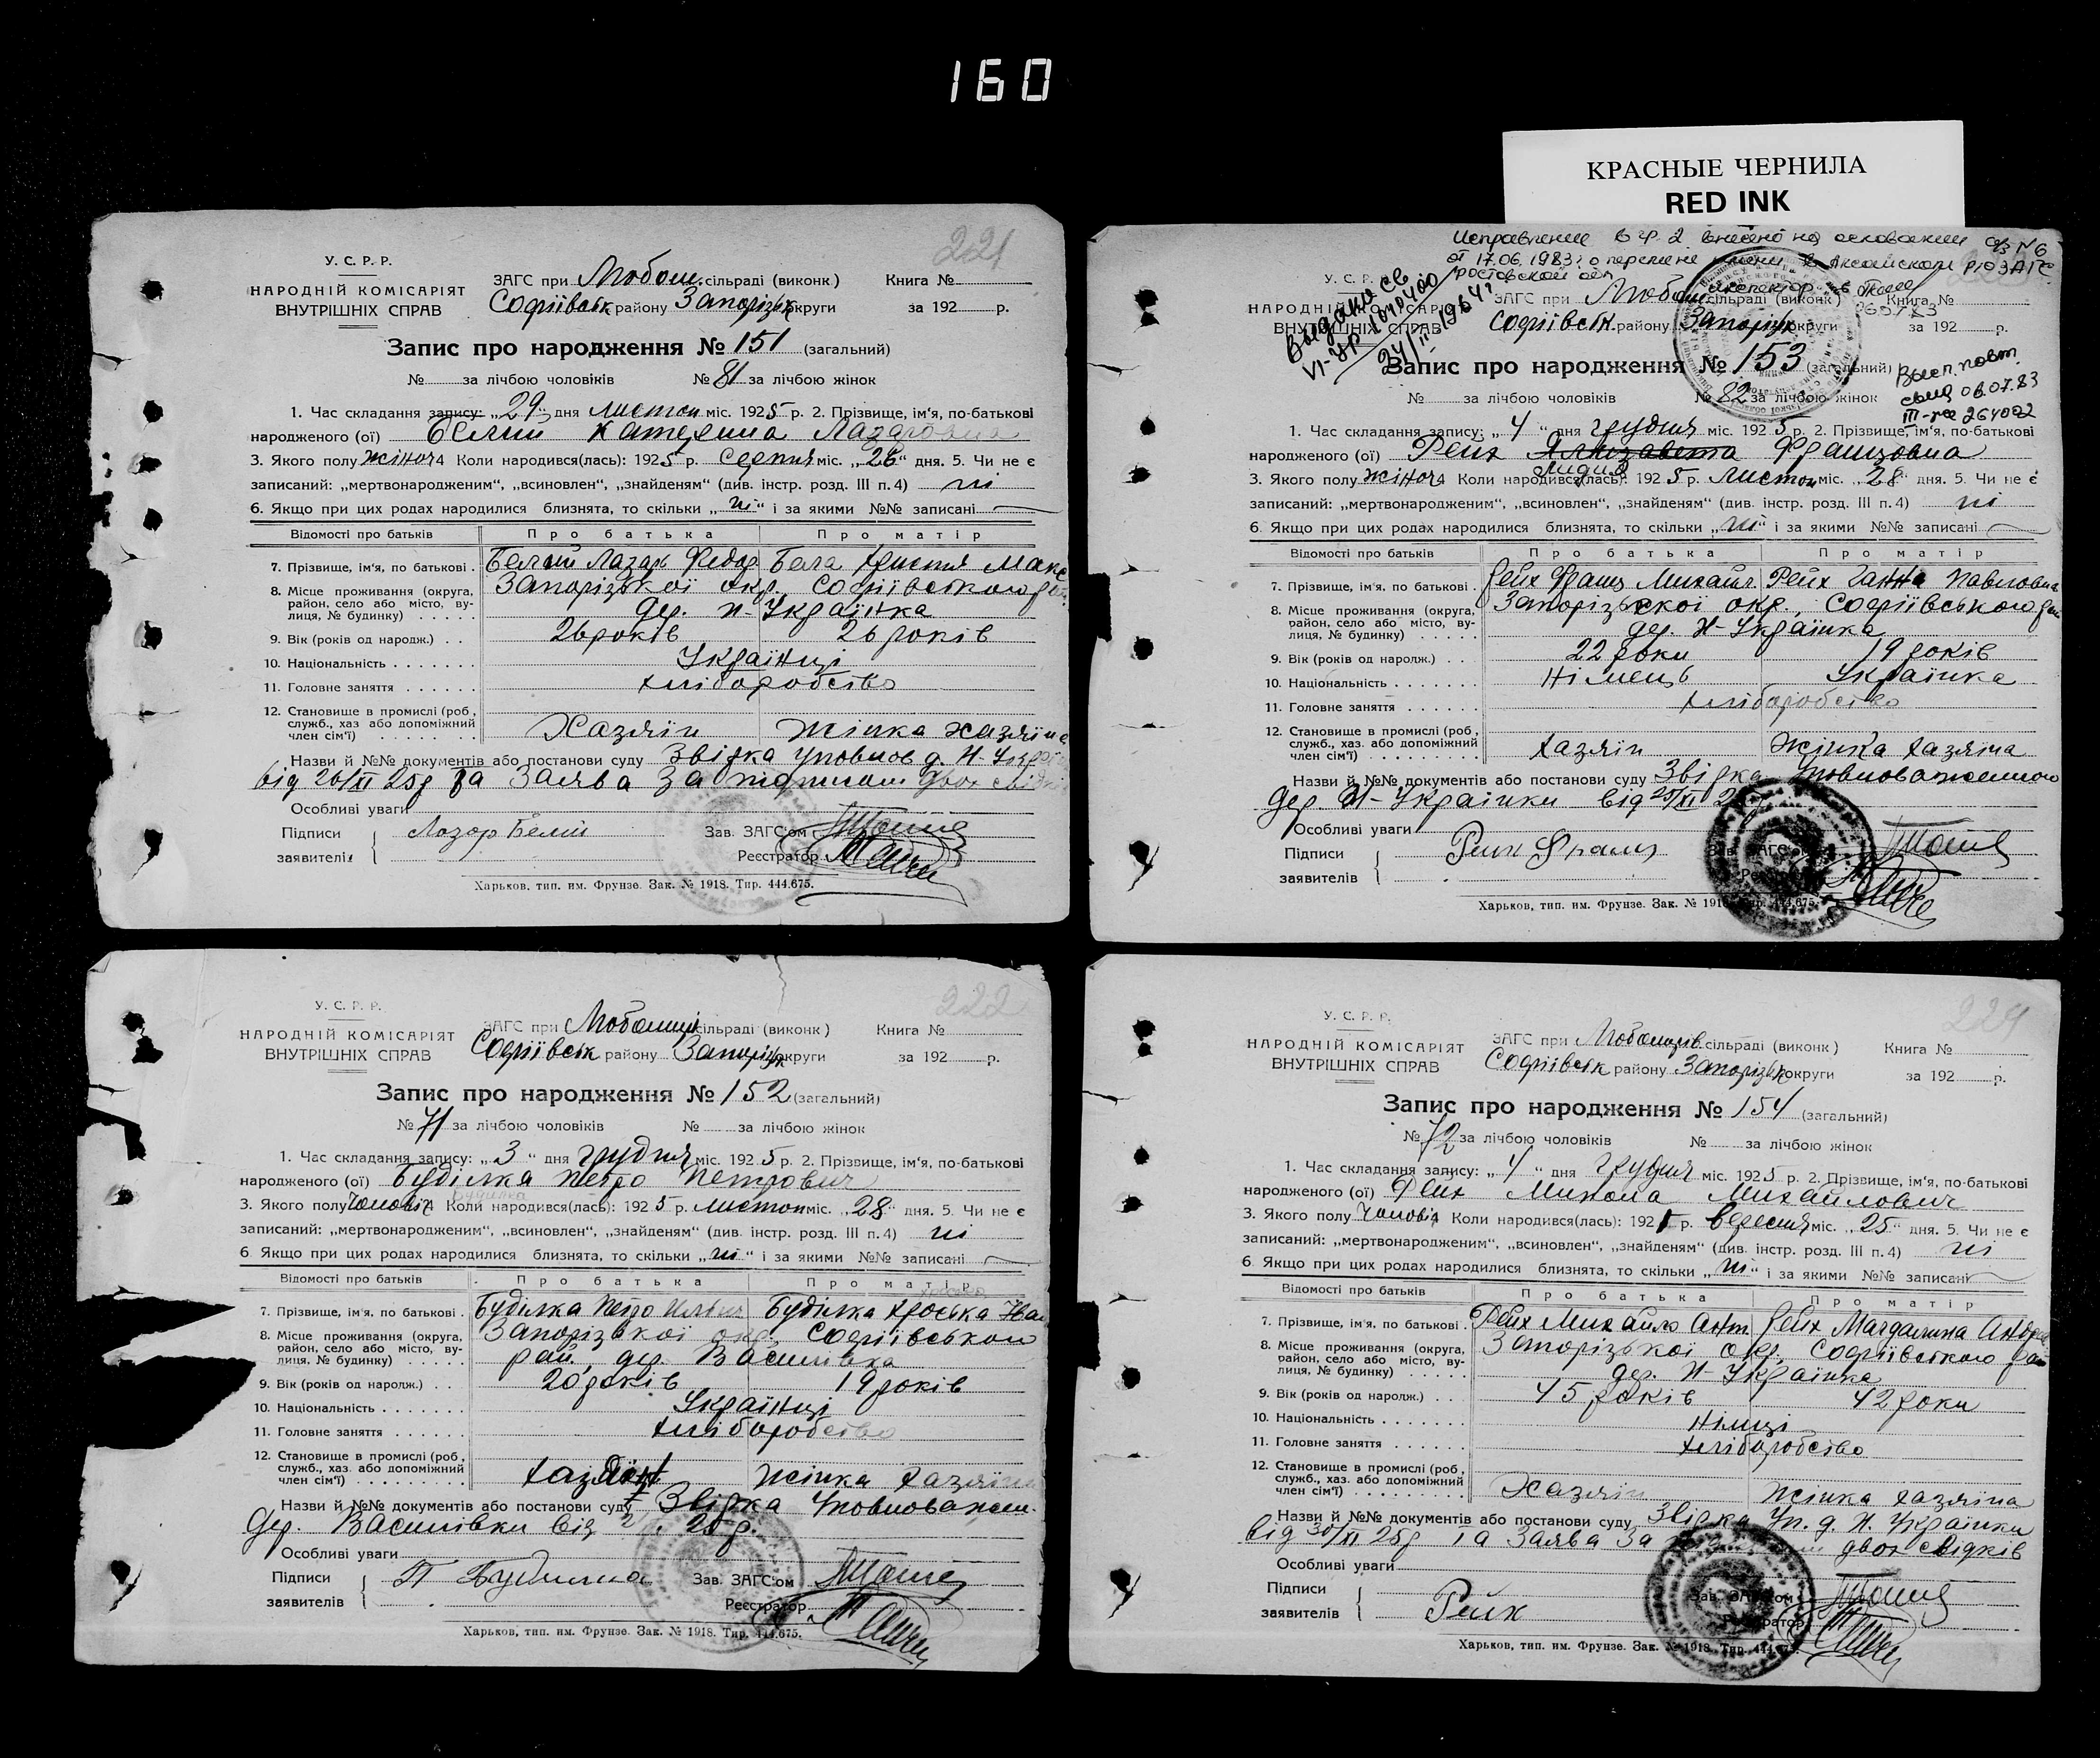 160
КРАСНЫЕ ЧЕРНИЛА
RED INK
221
У. С. Р. Р.
НАРОДНІЙ КОМІСАРІЯТ
ВНУТРІШНІХ СПРАВ
ЗАГС при Любош. сільраді (виконк) Книга №
Софіївськ району Запорізьк округи за 192 р.
Запис про народження № 151 (загальний)
№ за лічбою чоловіків № 81 за лічбою жінок
1. Час складання запису: „29" дня листоп міс. 1925 р. 2. Прізвище, ім'я, по-батькові
народженого (ої) Белий Катерина Лазаровна
3. Якого полу жіноч 4 Коли народився(лась): 1925 р. Серпня міс. „26" дня. 5. Чи не є
записаний: „мертвонародженим", „всиновлен", „знайденям" (див. інстр. розд. III п. 4) ні
6. Якщо при цих родах народилися близнята, то скільки „ні" і за якими №№ записані
Відомості про батьків Про батька Про матір
7. Прізвище, ім'я, по батькові . Белий Лазар Федор Бела Христя Макс
8. Місце проживання (округа, район, село або місто, вулиця, № будинку) Запорізької окр. Софіївського рай.
дер. Н-Українка
9. Вік (років од народж.) 26 років 26 років
10. Національність Українці
11. Головне заняття хліборобство
12. Становище в промислі (роб, служб., хаз або допоміжний член сім'ї) Хазяїн Жінка хазяїна
Назви й №№ документів або постанови суду Звідка уповнов д. Н-Україн
від 26/XI 25р та Заява за підписом двох свідк
Особливі уваги
Підписи заявителів Лазар Белий Зав. ЗАГС'ом
Реєстратор
Харьков, тип. им. Фрунзе. Зак. № 1918. Тир. 444.675.
Исправление в гр. 2 внесено на основании а/з N 6
от 17.06.1983г о перемене имени в Аксайском РЮЗАГС
Ростовской обл
Выдано св
VI-УР 1070400
24/III 1964г
У. С. Р. Р.
НАРОДНІЙ КОМІСАРІЯТ
ВНУТРІШНІХ СПРАВ
ЗАГС при Любош сільраді (виконк) Книга №
Софіївськ. району Запорізьк округи за 192 р.
Запис про народження № 153 (загальний)
Высл. повт.
свид 06.07.83
№ за лічбою чоловіків № 82 за лічбою жінок
1. Час складання запису: „4" дня грудня міс. 1925 р. 2. Прізвище, ім'я, по-батькові
народженого (ої) Рейх Ялизавета Францовна
Лидия
3. Якого полу жіноч 4 Коли народився(лась): 1925 р. Листоп міс. „28" дня. 5. Чи не є
записаний: „мертвонародженим", „всиновлен", „знайденям" (див. інстр. розд. III п. 4) ні
6. Якщо при цих родах народилися близнята, то скільки „ні" і за якими №№ записані
Відомості про батьків Про батька Про матір
7. Прізвище, ім'я, по батькові . Рейх Франц Михайл. Рейх Ганна Павловна
8. Місце проживання (округа, район, село або місто, вулиця, № будинку) Запорізької окр., Софіївського рай
дер. Н-Українка
9. Вік (років од народж.) 22 роки 19 років
10. Національність Німець Українка
11. Головне заняття хліборобство
12. Становище в промислі (роб., служб., хаз. або допоміжний член сім'ї) хазяїн Жінка хазяїна
Назви й №№ документів або постанови суду Звідка Уповноваженого
дер. Н-Українки від 25/XI 25р
Особливі уваги
Підписи заявителів Рейх Франц Зав. ЗАГС'ом
Реєстратор
Харьков, тип. им. Фрунзе. Зак. № 1918. Тир. 444.675.
222
У. С. Р. Р.
НАРОДНІЙ КОМІСАРІЯТ
ВНУТРІШНІХ СПРАВ
ЗАГС при Любошці сільраді (виконк) Книга №
Софіївськ району Запорізьк округи за 192 р.
Запис про народження № 152 (загальний)
№ 71 за лічбою чоловіків № за лічбою жінок
1. Час складання запису: „3" дня грудня міс. 1925 р. 2. Прізвище, ім'я, по-батькові
народженого (ої) Буділка Петро Петрович
Будилка
3. Якого полу Чоловіч 4 Коли народився(лась): 1925 р. листоп міс. „28" дня. 5. Чи не є
записаний: „мертвонародженим", „всиновлен", „знайденям" (див. інстр. розд. III п. 4) ні
6 Якщо при цих родах народилися близнята, то скільки „ні" і за якими №№ записані
Відомості про батьків Про батька Про матір
7. Прізвище, ім'я, по батькові . Буділка Петро Буділка Хроська Іван
8. Місце проживання (округа, район, село або місто, вулиця, № будинку) Запорізької окр. Софіївського
рай. дер. Василівка
9. Вік (років од народж.) 20 років 19 років
10. Національність Українці
11. Головне заняття хліборобство
12. Становище в промислі (роб, служб., хаз. або допоміжний член сім'ї) хазяїн Жінка хазяїна
Назви й №№ документів або постанови суду Звідка Уповноважен.
дер. Василівки від 25р.
Особливі уваги
Підписи заявителів П Будилка Зав. ЗАГС'ом
Реєстратор
Харьков, тип. им. Фрунзе. Зак. № 1918. Тир. 444.675.
224
У. С. Р. Р.
НАРОДНІЙ КОМІСАРІЯТ
ВНУТРІШНІХ СПРАВ
ЗАГС при Любошців. сільраді (виконк) Книга №
Софіївськ району Запорізьк округи за 192 р.
Запис про народження № 154 (загальний)
№ 72 за лічбою чоловіків № за лічбою жінок
1. Час складання запису: „4" дня грудня міс. 1925 р. 2. Прізвище, ім'я, по-батькові
народженого (ої) Рейх Микола Михайлович
3. Якого полу Чоловіч Коли народився(лась): 192 р. вересня міс. „25" дня. 5. Чи не є
записаний: „мертвонародженим", „всиновлен", „знайденям" (див. інстр. розд. III п. 4) ні
6. Якщо при цих родах народилися близнята, то скільки „ні" і за якими №№ записані
Відомості про батьків Про батька Про матір
7. Прізвище, ім'я, по батькові . Рейх Михайло Ант Рейх Магдалина Андр
8. Місце проживання (округа, район, село або місто, вулиця, № будинку) Запорізької окр. Софіївського рай
дер. Н-Українка
9. Вік (років од народж.) 45 років 42 роки
10. Національність Німці
11. Головне заняття хліборобство
12. Становище в промислі (роб, служб., хаз. або допоміжний член сім'ї) Хазяїн Жінка хазяїна
Назви й №№ документів або постанови суду Звідка Уп. д. Н. Українки
від 30/XI 25р та Заява за двох свідків
Особливі уваги
Підписи заявителів Рейх Зав. ЗАГС'ом
Реєстратор
Харьков, тип. им. Фрунзе. Зак. № 1918. Тир. 444.675.